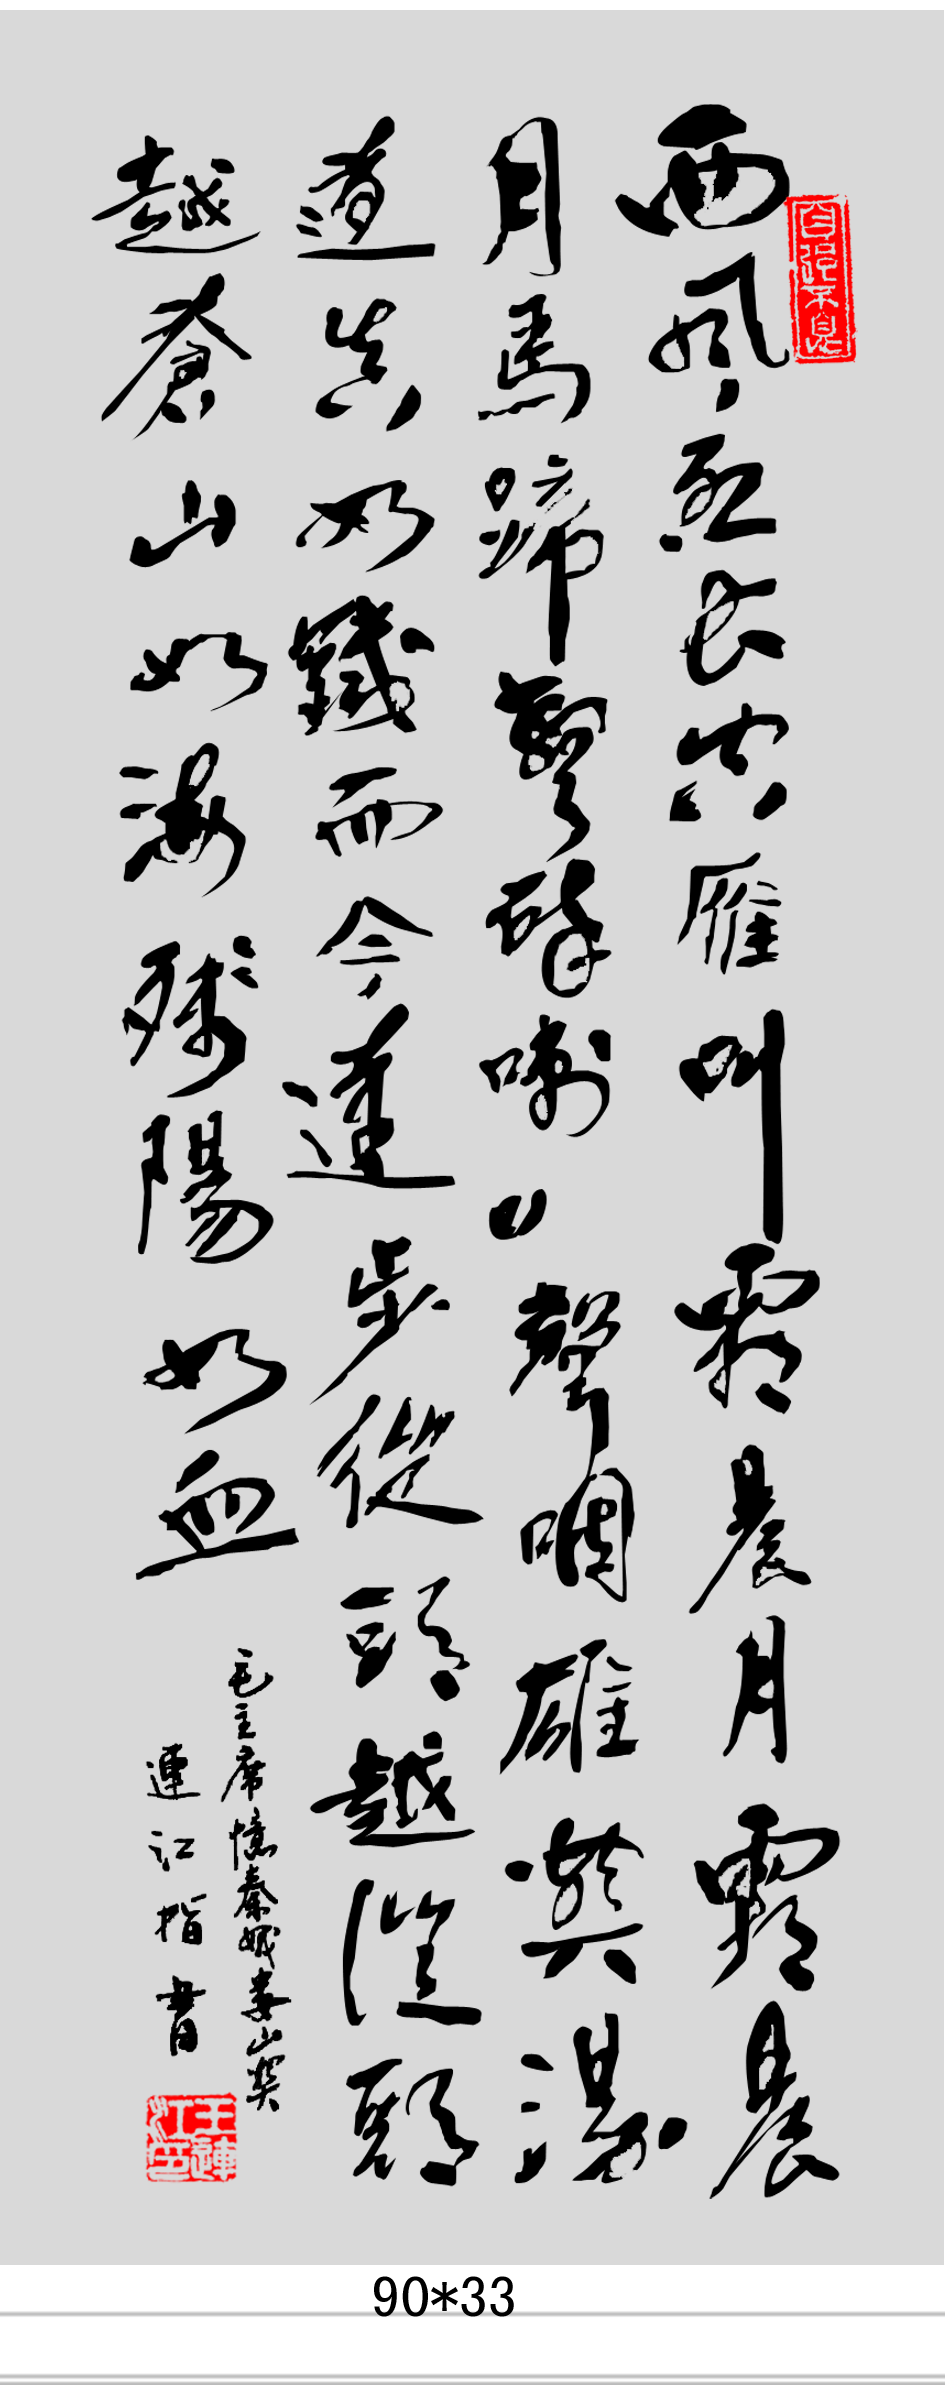 自強不息
西風烈長空雁叫霜晨月霜晨
月馬蹄聲碎喇叭聲咽雄關漫
道真如鐵而今邁步從頭越從頭
越蒼山如海殘陽如血
毛主席憶秦娥婁山關
連江指書
王連江印
90*33